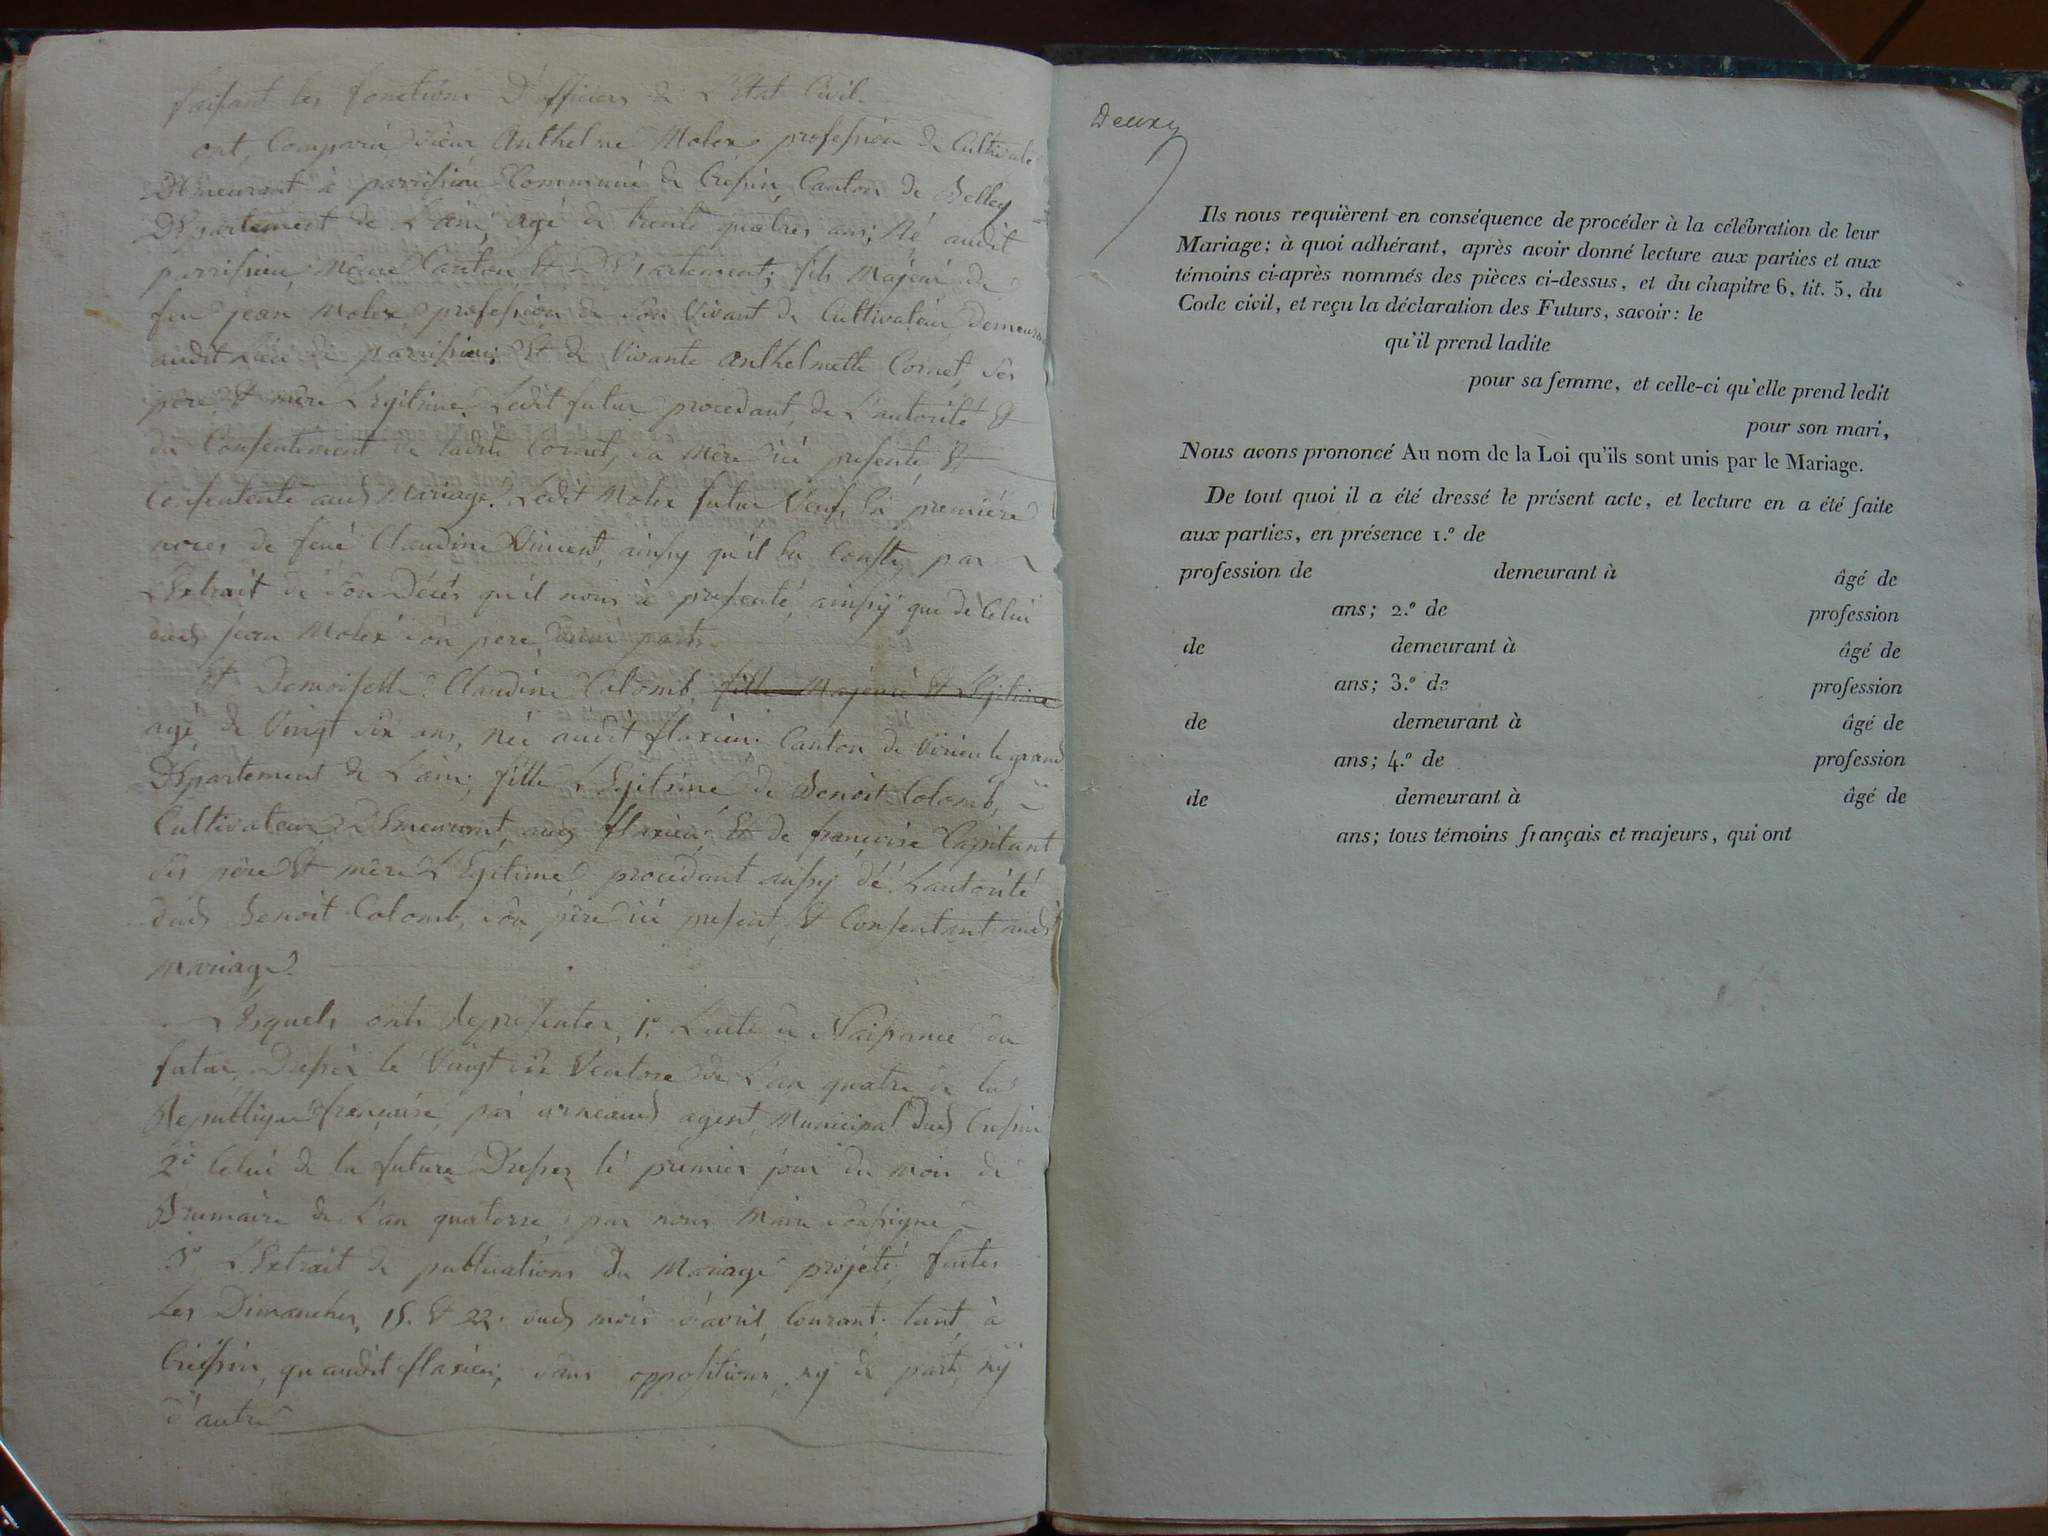 faisant les fonctions D'officiers de L'Etat Civil.
ont, Comparu sieur Anthelme Molex profession de Cultivate
Demeurant à parrissieu Commune de Cressin Canton de Belley
Departement de L'ain, agé de trente quatres ans; Né audit
parrissieu même Canton Et Departement; fils Majeur de
feu jean Molex profession de son Vivant de Cultivateur Demeurt
audit Lieu de parrissieu; Et de Vivante anthelmette Cornet, ses
père Et mère Legitime, Ledit futur procedant, de L'autorité Et
du Consentement de ladite Cornet, sa mère ici presente Et
Consentente aud Mariage. Ledit Molex futur Veuf, En première
noces de feue Claudine, ainsy qu'il En Conste, par
L'Extrait de son Décès qu'il nous à presenté, ainsy que de Celui
dud jean Molex son pere, d'une part.
Et Demoiselle Claudine Colomb, fille Majeure Et Legitime
agé, de Vingt six ans, née audit flaxieu Canton de Virieu le grand
Departement de L'ain; fille Legitime de Benoit Colomb,
Cultivateur Demeurant, aud flaxieu, Et de françoise Capitant
ses père Et mère Legitime, procedant aussy dé Lautorité
dud Benoit Colomb, son père ici present, Et Consentant aud
mariage.
Lesquels onts Representer, 1.° L'acte de Naissance du
futur, Dressé le Vingt six Ventose de L'an quatre de la
Republique française, par arneaud agent Municipal dud Cressin
2° Celui de la future Dresser, lé premier jour du mois de
Brumaire de L'an quatorse, par nous Maire sousigné
3° L'Extrait de publications du Mariage projeté, faites
Les Dimanches, 15. Et 22. dud mois d'avril, Courant; tant, à
Cressin, qu'audit flaxieu; sans oppositions, ny de part, ny
d'autre
Deuxy
Ils nous requièrent en conséquence de procéder à la célébration de leur
Mariage; à quoi adhérant, après avoir donné lecture aux parties et aux
témoins ci-après nommés des pièces ci-dessus, et du chapitre 6, tit. 5, du
Code civil, et reçu la déclaration des Futurs, savoir: le
qu'il prend ladite
pour sa femme, et celle-ci qu'elle prend ledit
pour son mari,
Nous avons prononcé Au nom de la Loi qu'ils sont unis par le Mariage.
De tout quoi il a été dressé le présent acte, et lecture en a été faite
aux parties, en présence 1.° de
profession de demeurant à âgé de
ans; 2.° de profession
de demeurant à âgé de
ans; 3.° de profession
de demeurant à âgé de
ans; 4.° de profession
de demeurant à âgé de
ans; tous témoins français et majeurs, qui ont